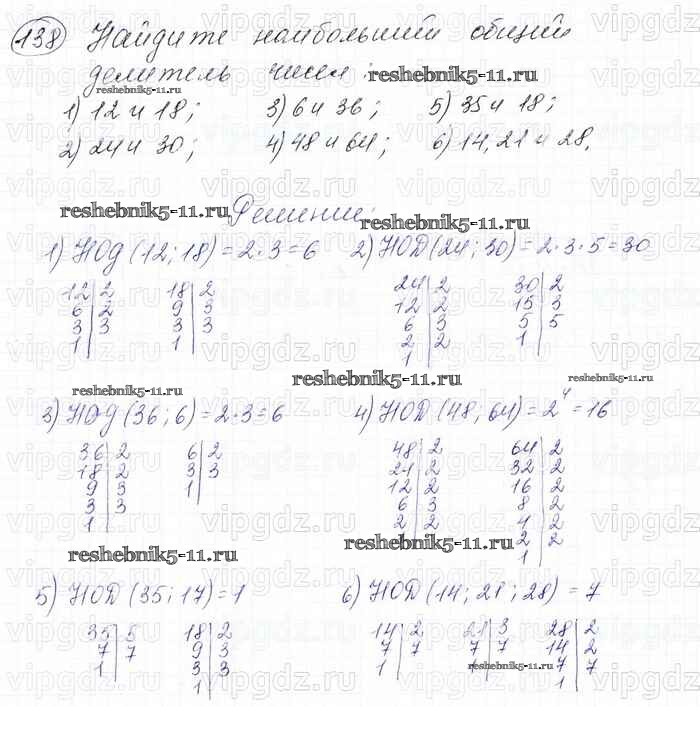 138 Найдите наибольший общий
делитель чисел:
reshebnik5-11.ru
reshebnik5-11.ru
1) 12 и 18; 3) 6 и 36; 5) 35 и 18;
2) 24 и 30; 4) 48 и 64; 6) 14, 21 и 28.
reshebnik5-11.ru Решение: reshebnik5-11.ru
1) НОД (12; 18) = 2·3 = 6 2) НОД (24; 30) = 2·3·5 = 30
12|2 18|2 24|2 30|2
6|2 9|3 12|2 15|3
3|3 3|3 6|3 5|5
1| 1| 2|2 1|
1|
reshebnik5-11.ru reshebnik5-11.ru reshebnik5-11.ru
3) НОД (36; 6) = 2·3 = 6 4) НОД (48; 64) = 2⁴ = 16
36|2 6|2 48|2 64|2
18|2 3|3 24|2 32|2
9|3 1| 12|2 16|2
3|3 6|3 8|2
1| 2|2 4|2
2|2
1|
reshebnik5-11.ru reshebnik5-11.ru
5) НОД (35; 17) = 1 6) НОД (14; 21; 28) = 7
35|5 18|2 14|2 21|3 28|2
7|7 9|3 7|7 7|7 14|2
1| 3|3 1| 1| 7|7
1| 1|
reshebnik5-11.ru
vipgdz.ru